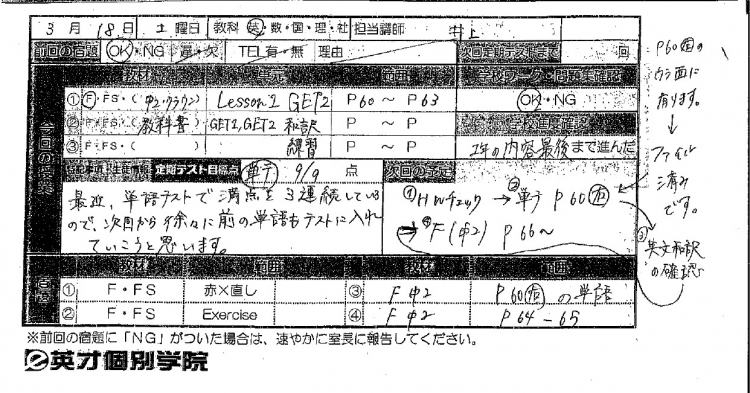 3月18日 土曜日 教科 英・数・国・理・社 担当講師 井上
前回の宿題 OK・NG 遅・欠 TEL有・無 理由 次回定期テストまで 回
教材 単元 範囲 学校ワーク・問題集確認
① F・FS・(中2・クラウン) Lesson1 GET2 P60～P63 OK・NG
②F・FS・(教科書) GET1, GET2 和訳 P～P 学校進度確認
③F・FS・( ) 練習 P～P 1年の内容最後まで進んだ
定期テスト目標点 単テ 9/9 点 次回の予定
最近、単語テストで満点を3連続している
ので、次回から徐々に前の単語もテストに入れ
ていこうと思います。
①HWチェック → ②単テ P60
→ F(中2) P66～
③英文和訳
の確認
P60の
うら面に
有ります。
↓
ファイル
済み
です。
教材 範囲 教材 範囲
宿題
① F・FS 赤×直し ③ F中2 P60の単語
② F・FS Exercise ④ F中2 P64-65
※前回の宿題に「NG」がついた場合は、速やかに室長に報告してください。
e英才個別学院